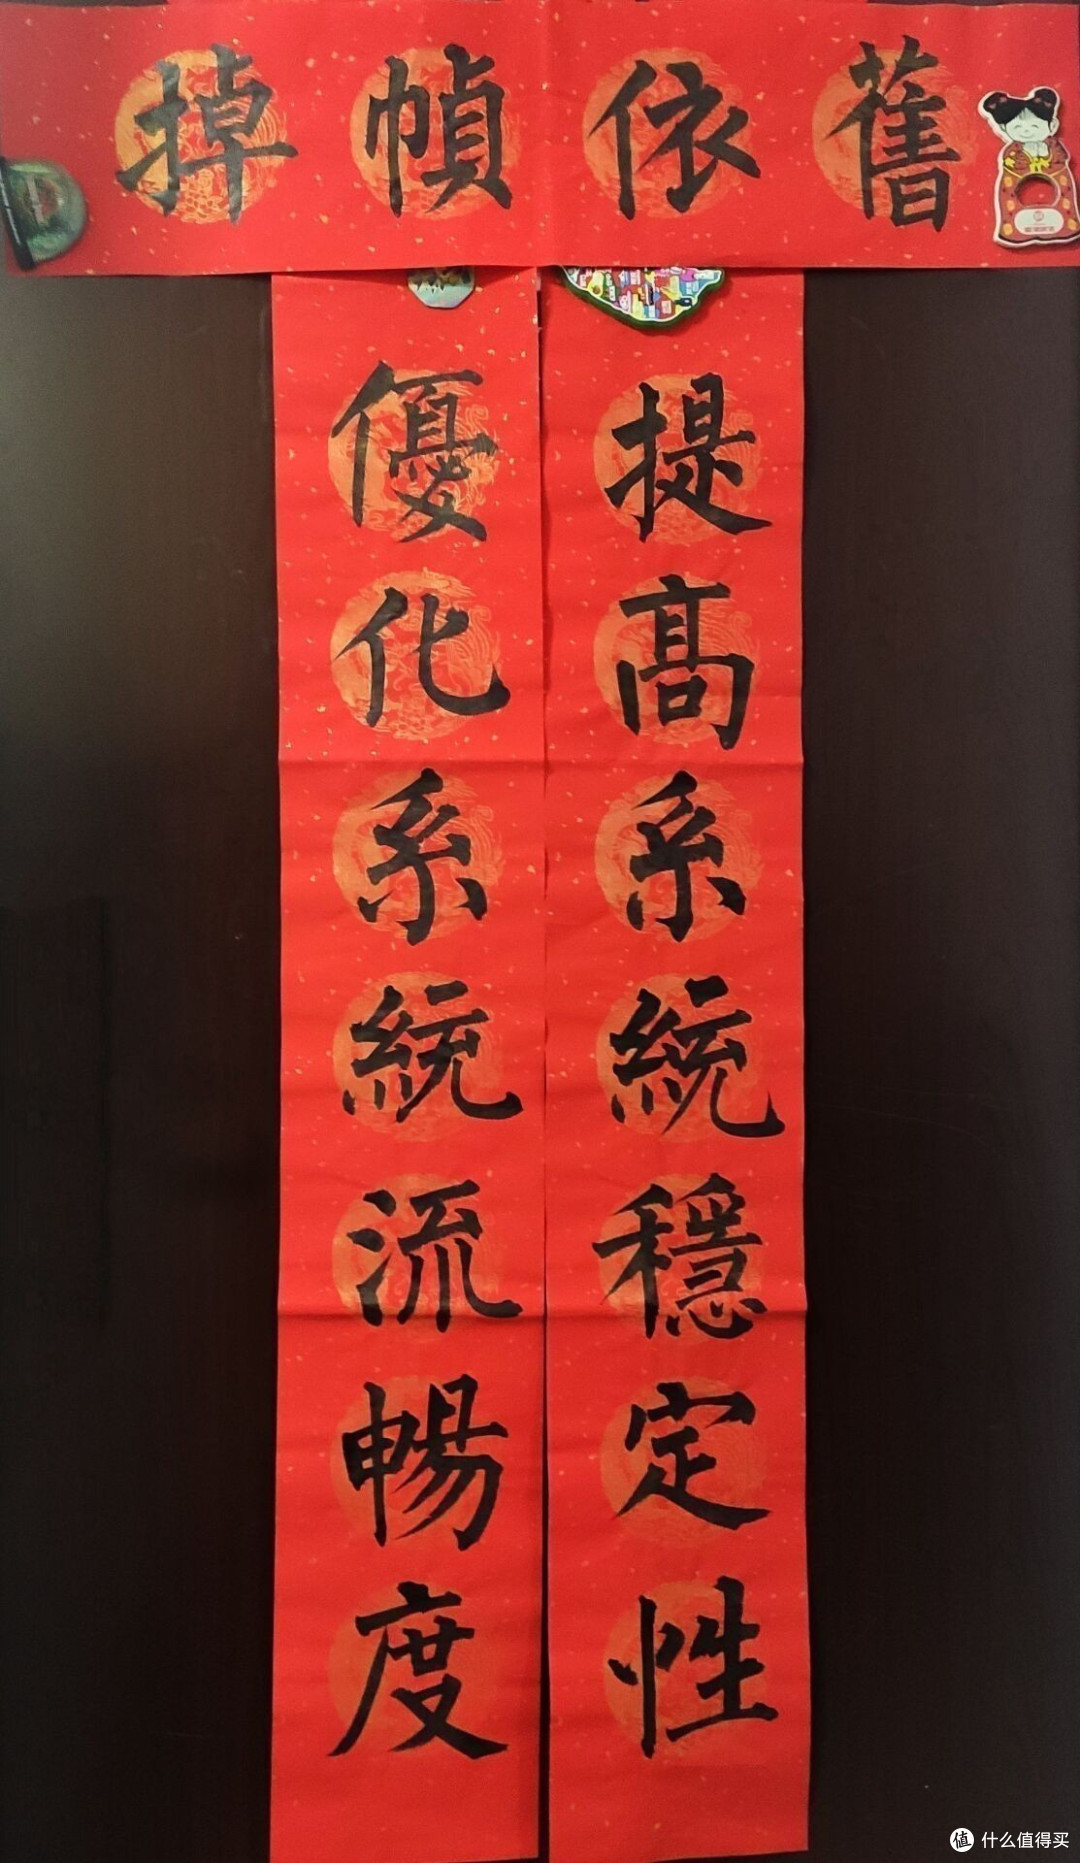 掉幀依舊
提高系統穩定性
優化系統流暢度
值 什么值得买